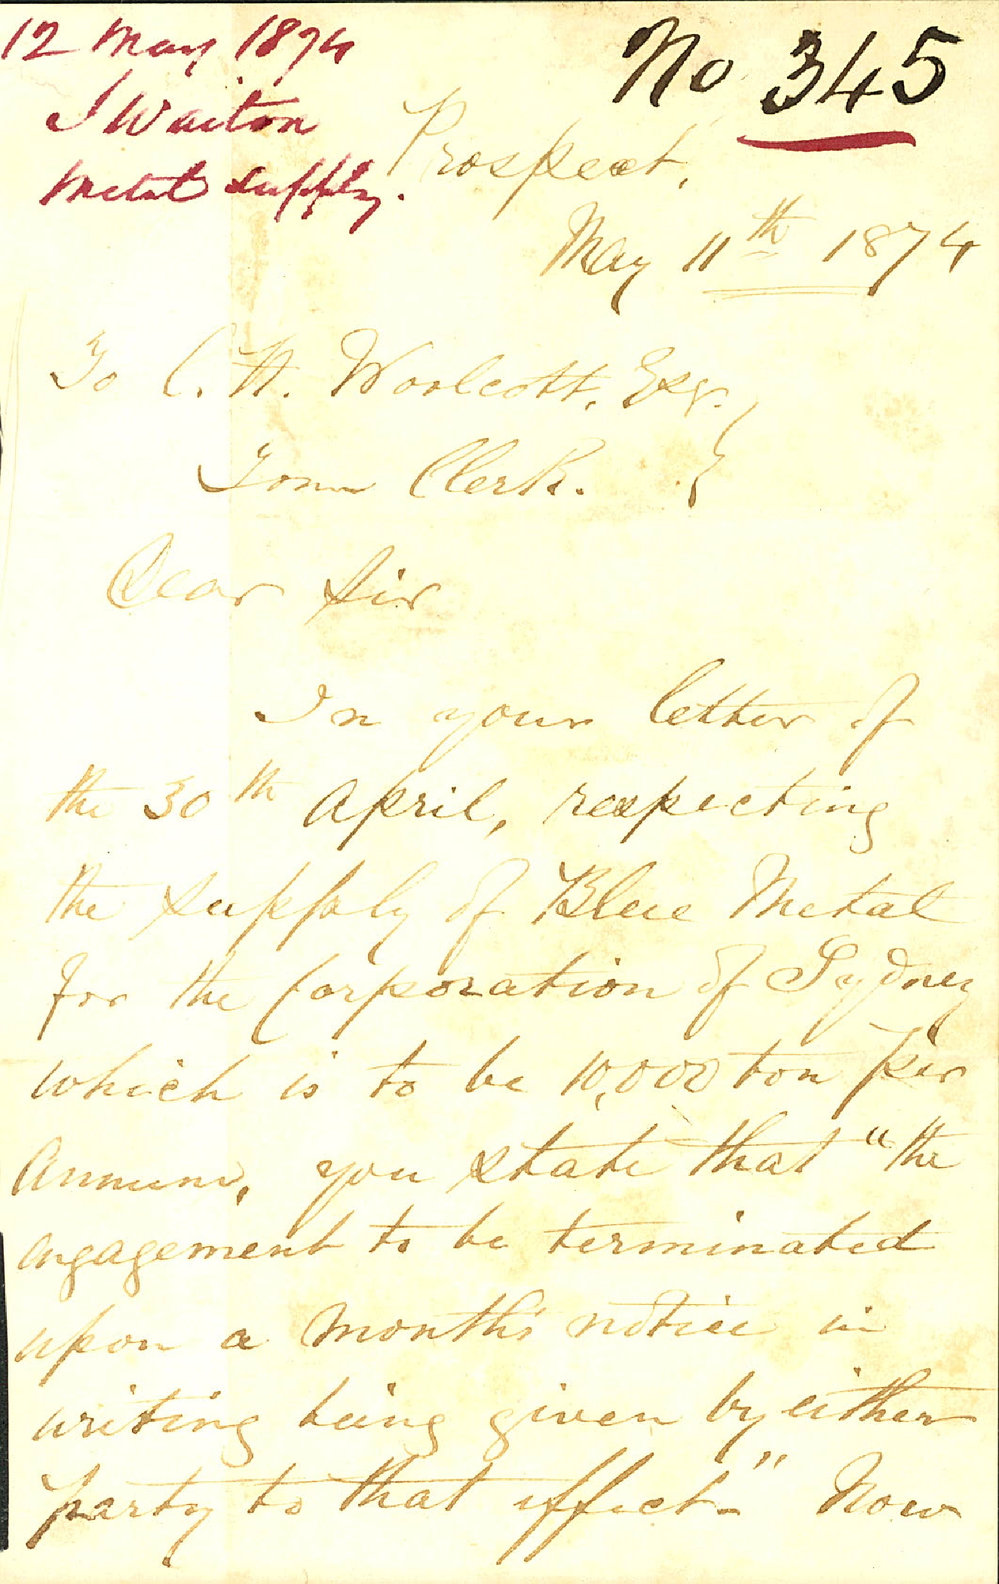 12 May 1874
J Waiton
Metal supply.
No 345
Prospect,
May 11th 1874
To C. H. Woolcott, Esqr.
Town Clerk.
Dear Sir
In your letter of
the 30th April, respecting
the supply of Blue Metal
for the Corporation of Sydney
which is to be 10,000 ton per
Annum, you state that "the
engagement to be terminated
upon a month's notice in
writing being given by either
party to that effect-" Now